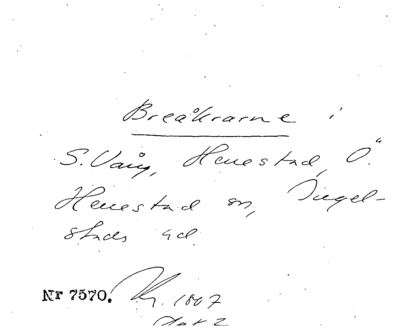 Breåkrarne i
S. Vång, Henestad, Ö.
Henestad sn, Ingel-
stads hd.
Nr 7570. 1807